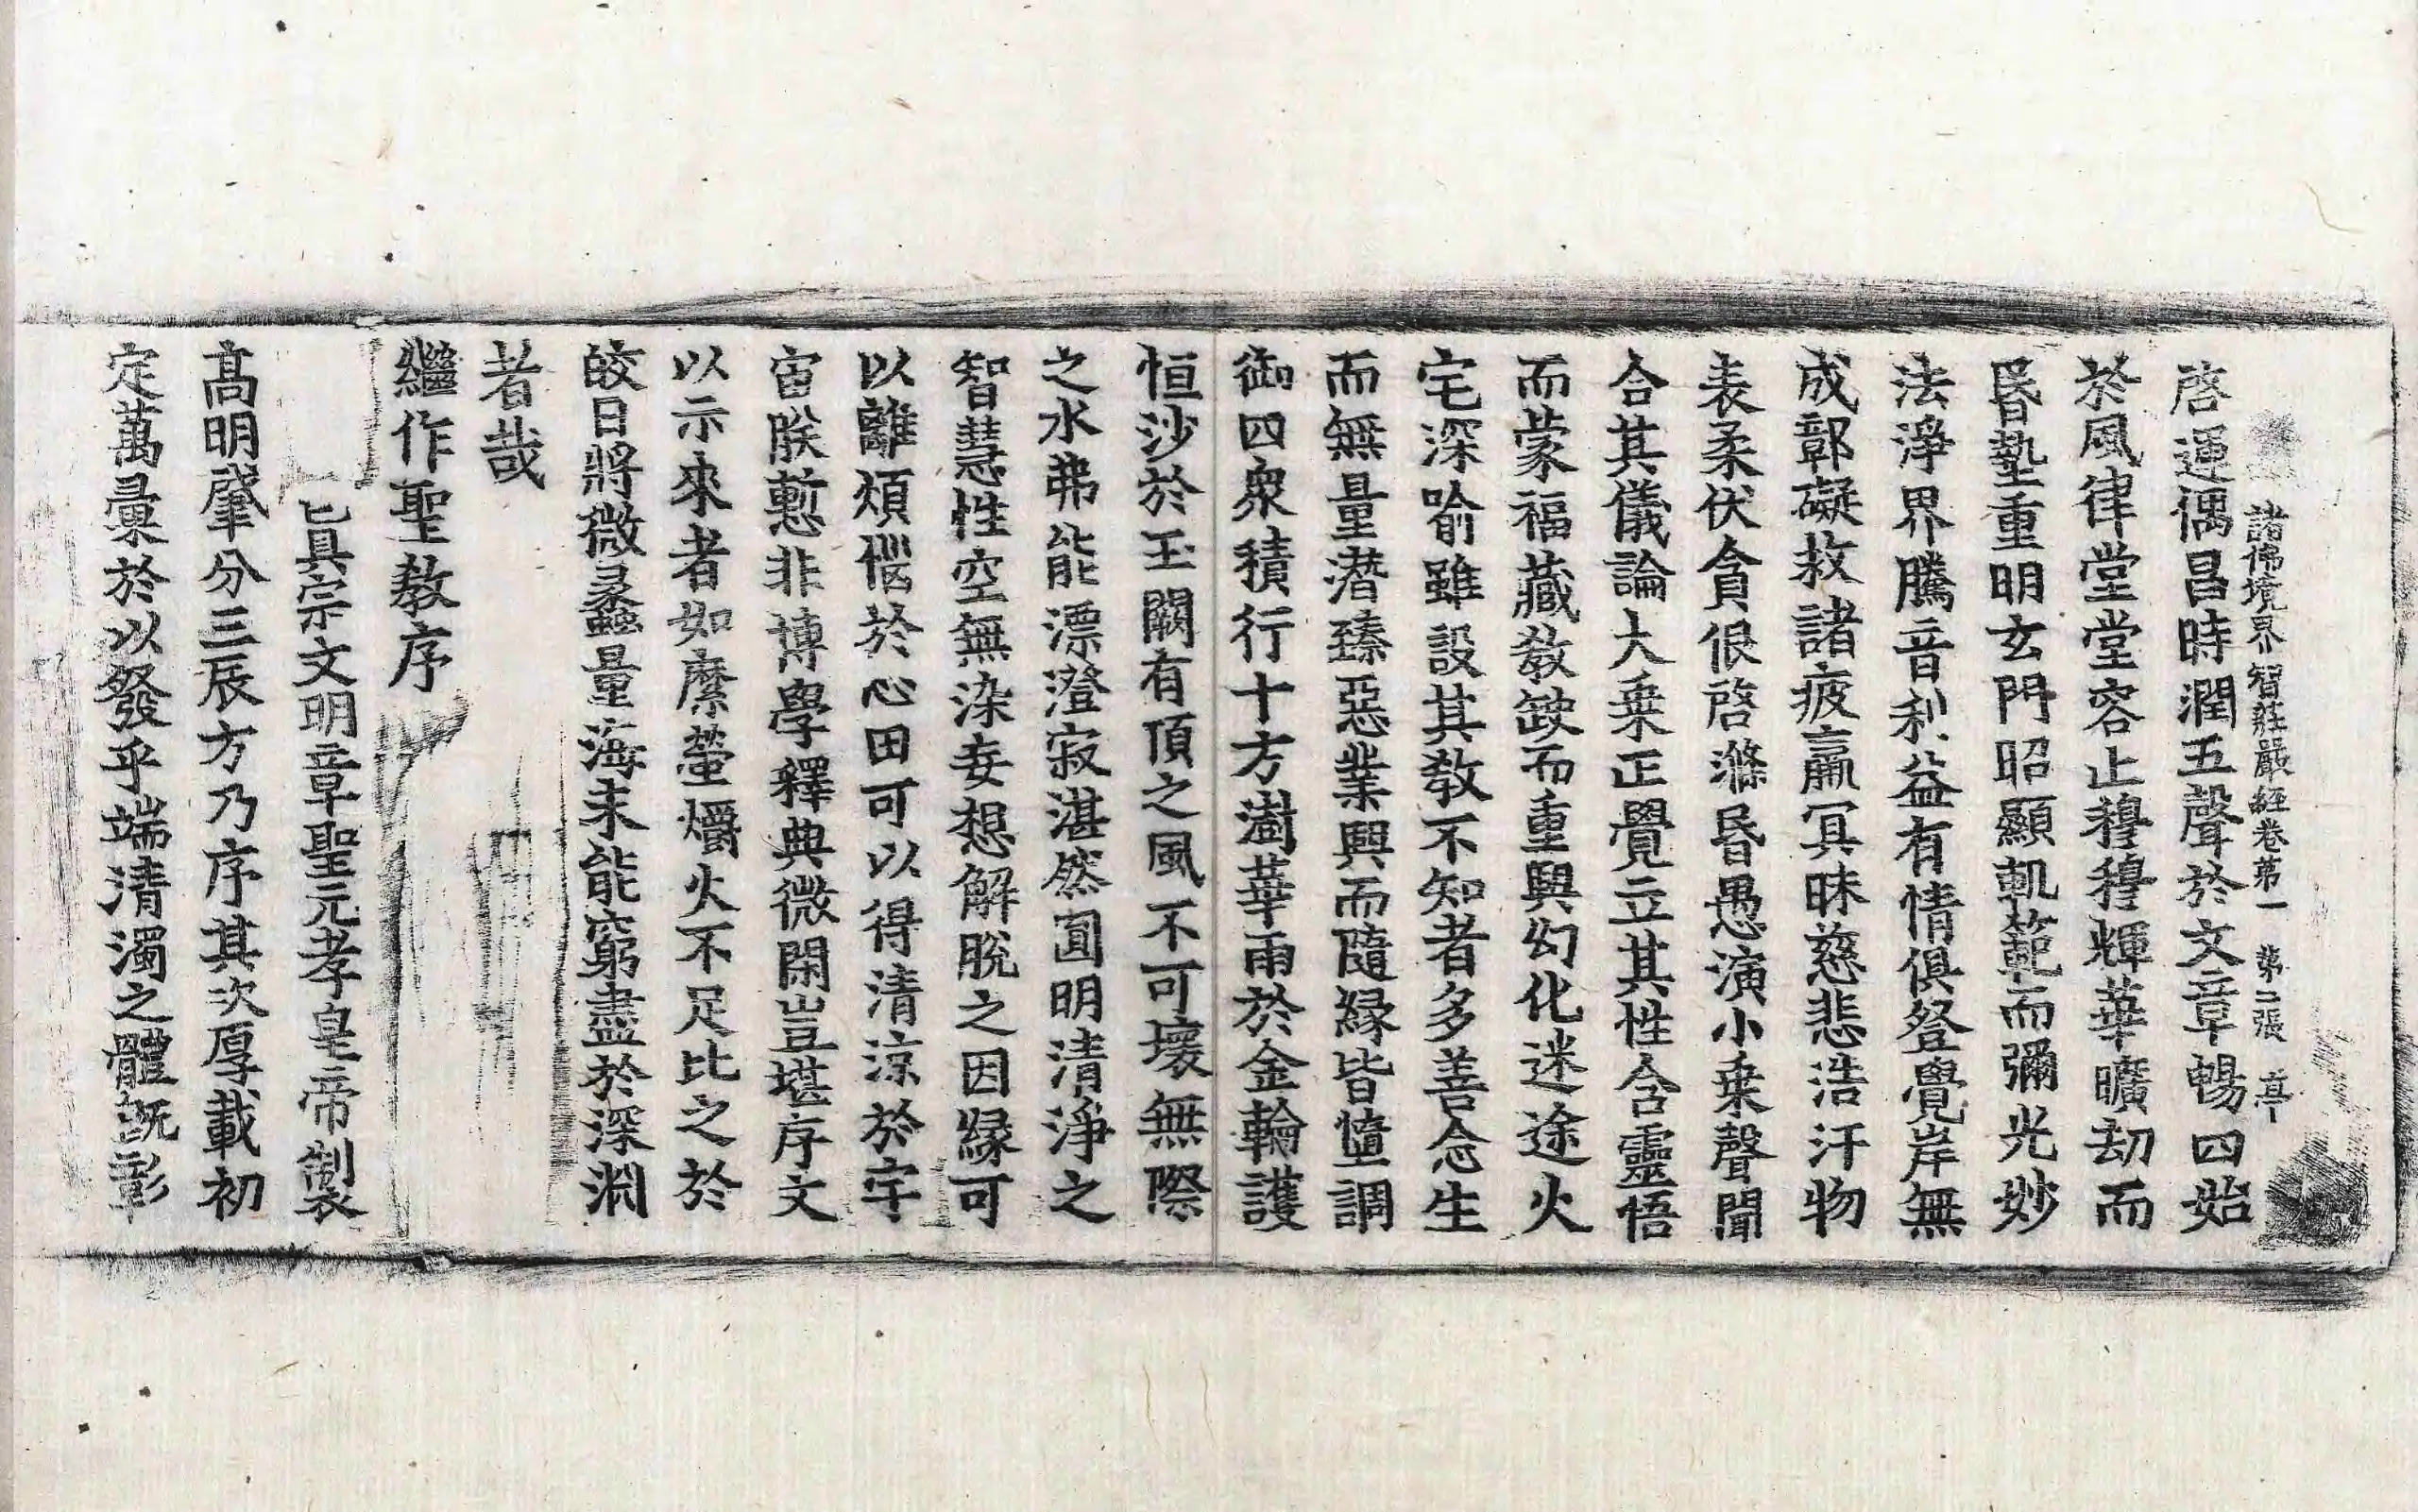 諸佛境界智莊嚴經卷第一　第二張　壹
啓運偶昌時潤五聲於文章暢四始
於風律堂堂容止穆穆輝華曠劫而
昏蟄重明玄門昭顯軌範而彌光妙
法淨界騰音利益有情俱登覺岸無
成鄣礙救諸疲羸冥昧慈悲浩汗物
表柔伏貪佷啓滌昏愚演小乗聲聞
合其儀論大乗正覺立其性含靈悟
而蒙福藏教缺而重興幻化迷途火
宅深喻雖設其教不知者多善念生
而無量潜臻惡業興而隨縁皆墮調
御四衆積行十方澍華雨於金輪護
恒沙於玉闕有頂之風不可壞無際
之水弗能漂澄寂湛然圓明清淨之
智慧性空無染妄想解脫之因縁可
以離煩惱於心田可以得清涼於宇
宙朕慙非博學釋典微閑豈堪序文
以示來者如縻螢爝火不足比之於
皎日將微蠡量海未能窮盡於深淵
者哉
繼作聖教序
真宗文明章聖元孝皇帝製
髙明肇分三辰方乃序其次厚載初
定萬彙於以發乎端清濁之體旣彰